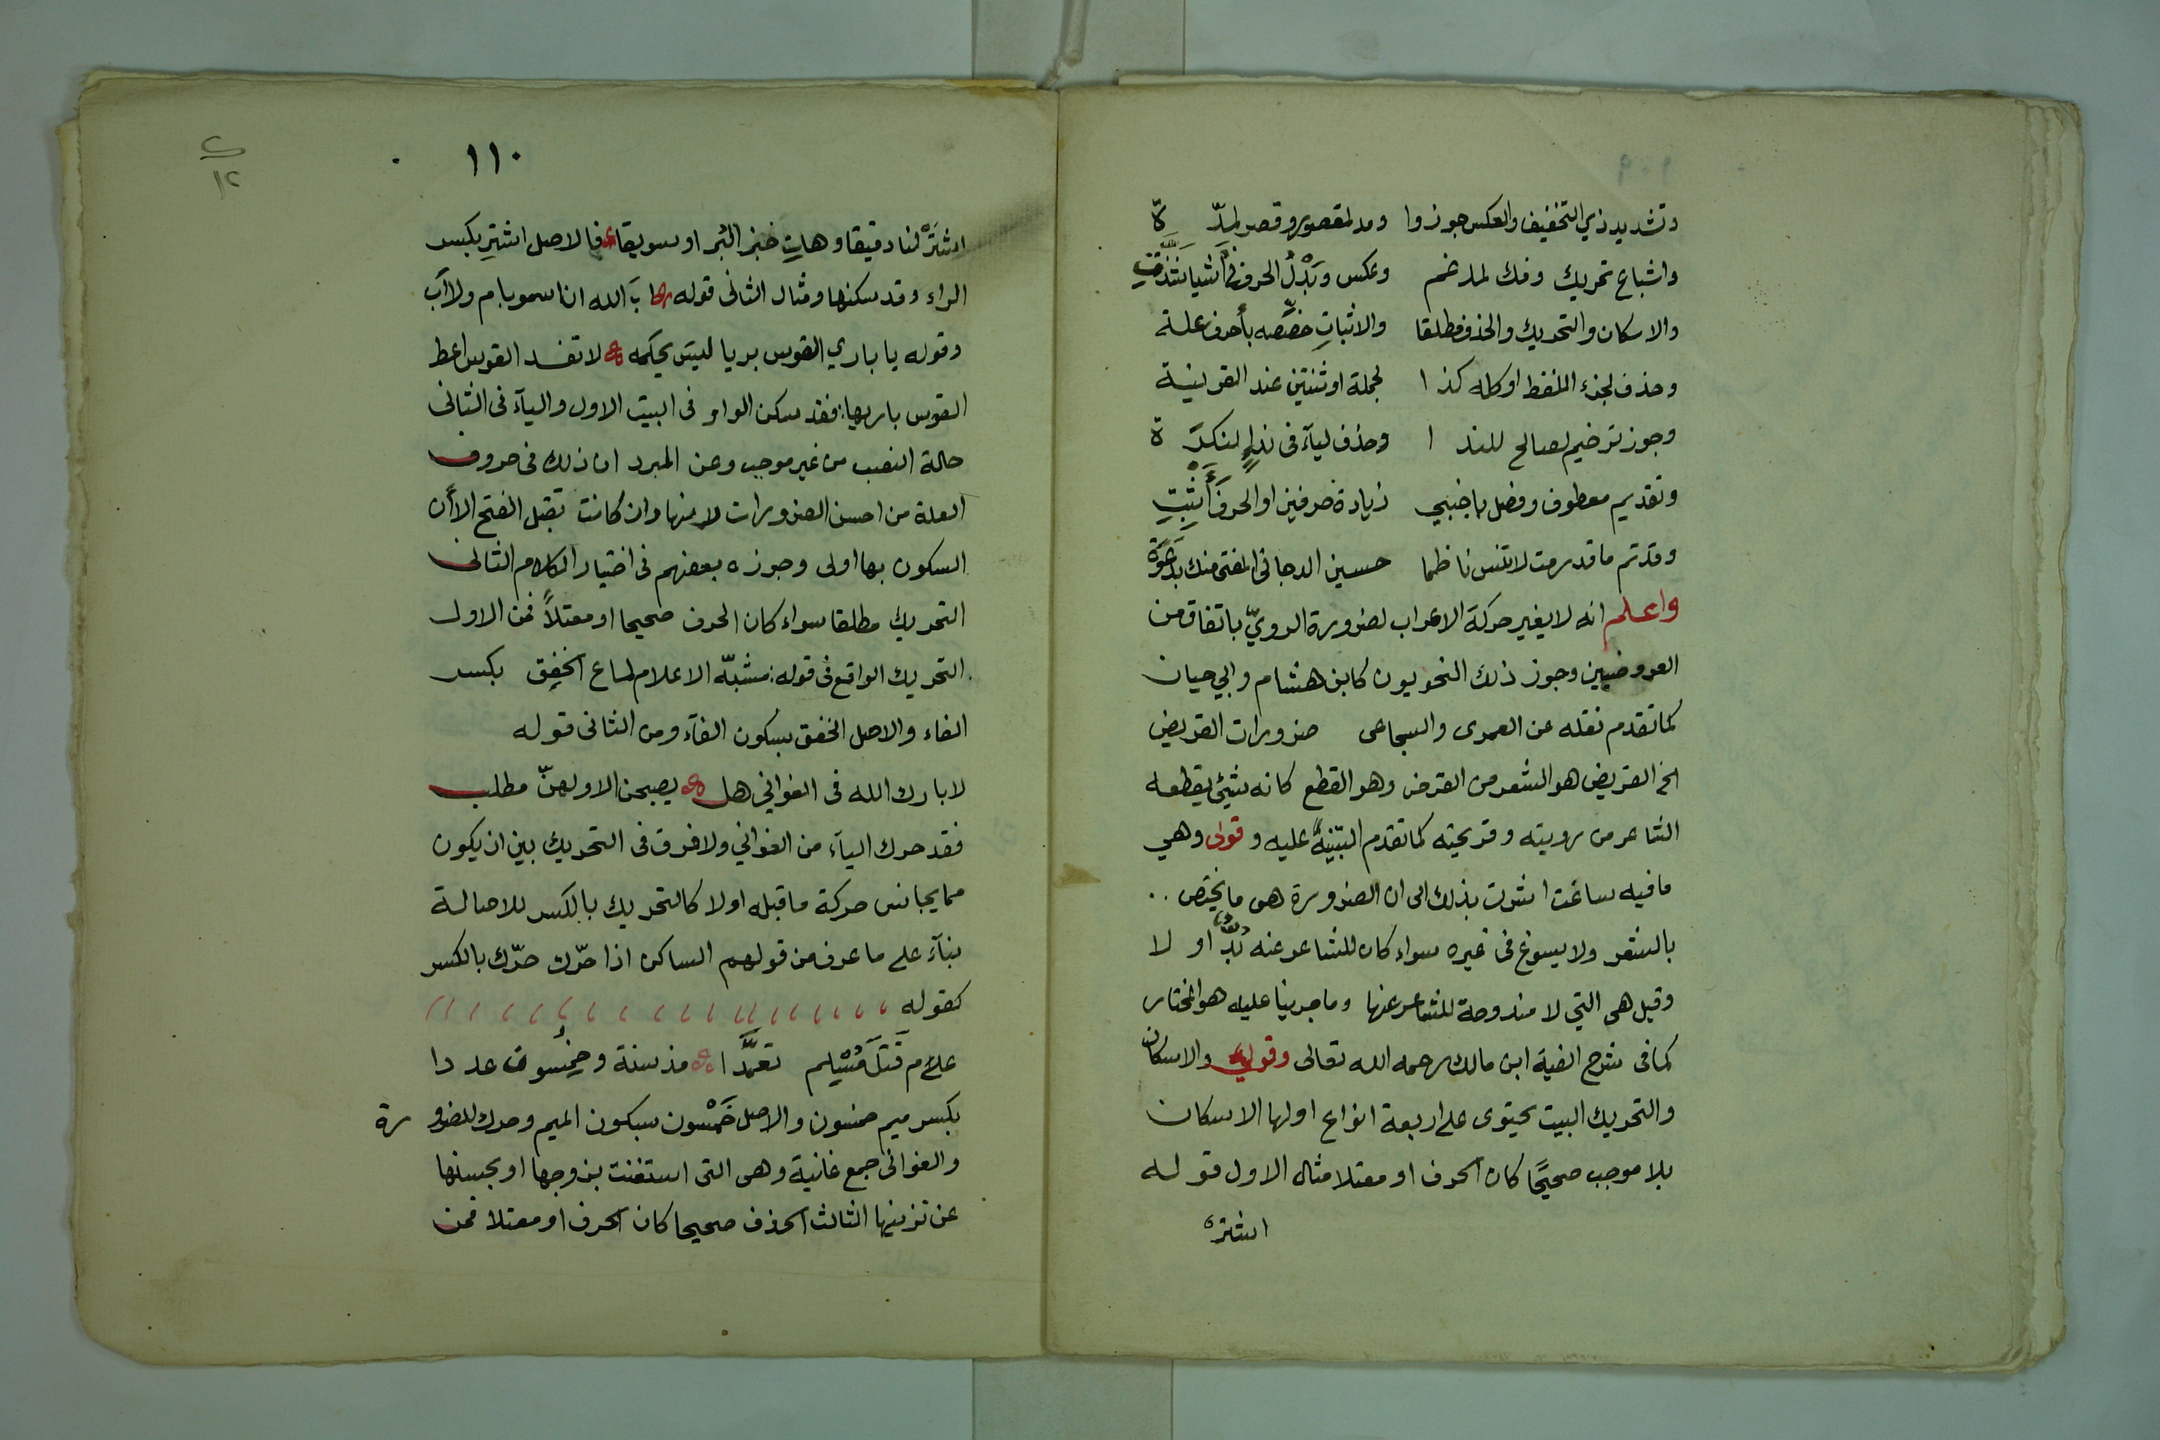 وتشديد ذي التخفيف والعكس جوزوا ومد لمقصور وقصر لمدّ ة
واشباع تحريك وفك لمدغم وعكس وبَدْلُ الحرف
والاسكان والتحريك والحذف مطلقا والاثباتِ خصّصه بأحرف علة
وحذف لجزء اللفظ او كله كذا لجملة او ثنتين عند القرينة
وجوز ترخيم لصالح للندا وحذف لياء فى نداءٍ لنكرَ ة
وتقديم معطوف وفصل باجنبي زيادة حرفين او الحرف أَثْبِتِ
وقد تم ما قد رمت لا تنس ناظما حسين الدجاني المفتى منك بدعوة
واعلم انه لا يغير حركة الاعراب لضرورة الرويّ باتفاق من
العروضيين وجوز ذلك النحويون كابن هشام وابي حيان
كما تقدم نقله عن العمرى والسجاعى ضرورات القريض
الخ القريض هو الشعر من القرض وهو القطع كانه شيئ يقطعه
الشاعر من رويته وقريحته كما تقدم التنبيه عليه وقولى وهي
ما فيه ساغت اشرت بذلك الى ان الضرورة هى ما يختص
بالشعر ولا يسوغ فى غيره سواء كان للشاعر عنه بدّ او لا
وقيل هى التي لا مندوحة للشاعر عنها وما جرينا عليه هو المختار
كما فى شرح الفية ابن مالك رحمه الله تعالى وقولي والاسكان
والتحريك البيت يحتوى على اربعة انواع اولها الاسكان
بلا موجب صحيحًا كان الحرف او معتلا مثال الاول قوله
اشترْ
١١٠
٢
١٢
اشترْ لنا دقيقا وهاتِ خبز البُر او سويقا فالاصل اشترِ بكسر
الراء وقد سكنها ومثال الثانى قوله بَ الله ان اسمو بام ولا أب
وقوله يا باري القوس بريا ليس يحكمه لا تفسد القوس اعط
القوس باريها فقد سكن الواو فى البيت الاول والياء فى الثانى
حالة النصب من غير موجب وعن المبرد ان ذلك فى حروف
العلة من احسن الضرورات لانها وان كانت تقبل الفتح الا أن
السكون بها اولى وجوزه بعضهم فى اختيار الكلام الثانى
التحريك مطلقا سواء كان الحرف صحيحا او معتلاً فمن الاول
التحريك الواقع فى قوله مشبّه الاعلام لماع الخفِق بكسر
الفاء والاصل الخفق بسكون الفاء ومن الثانى قوله
لا بارك الله فى الغواني هل يصبحن الا ولهنّ مطلب
فقد حرك الياء من الغواني ولا فرق فى التحريك بين ان يكون
مما يجانس حركة ما قبله اولا كالتحريك بالكسر للاصالة
بناء على ما عرف من قولهم الساكن اذا حرّك حرّك بالكسر
كقوله
علامَ قَتْلُ مُسْلِم تعمّدا مذ سنة وخمِسون عددا
بكسر ميم خمسون والاصل خَمْسون بسكون الميم وحرك للضرورة
والغوانى جمع غانية وهى التى استغنت بزوجها او بحسنها
عن تزينها الثالث الحذف صحيحا كان الحرف او معتلا فمن